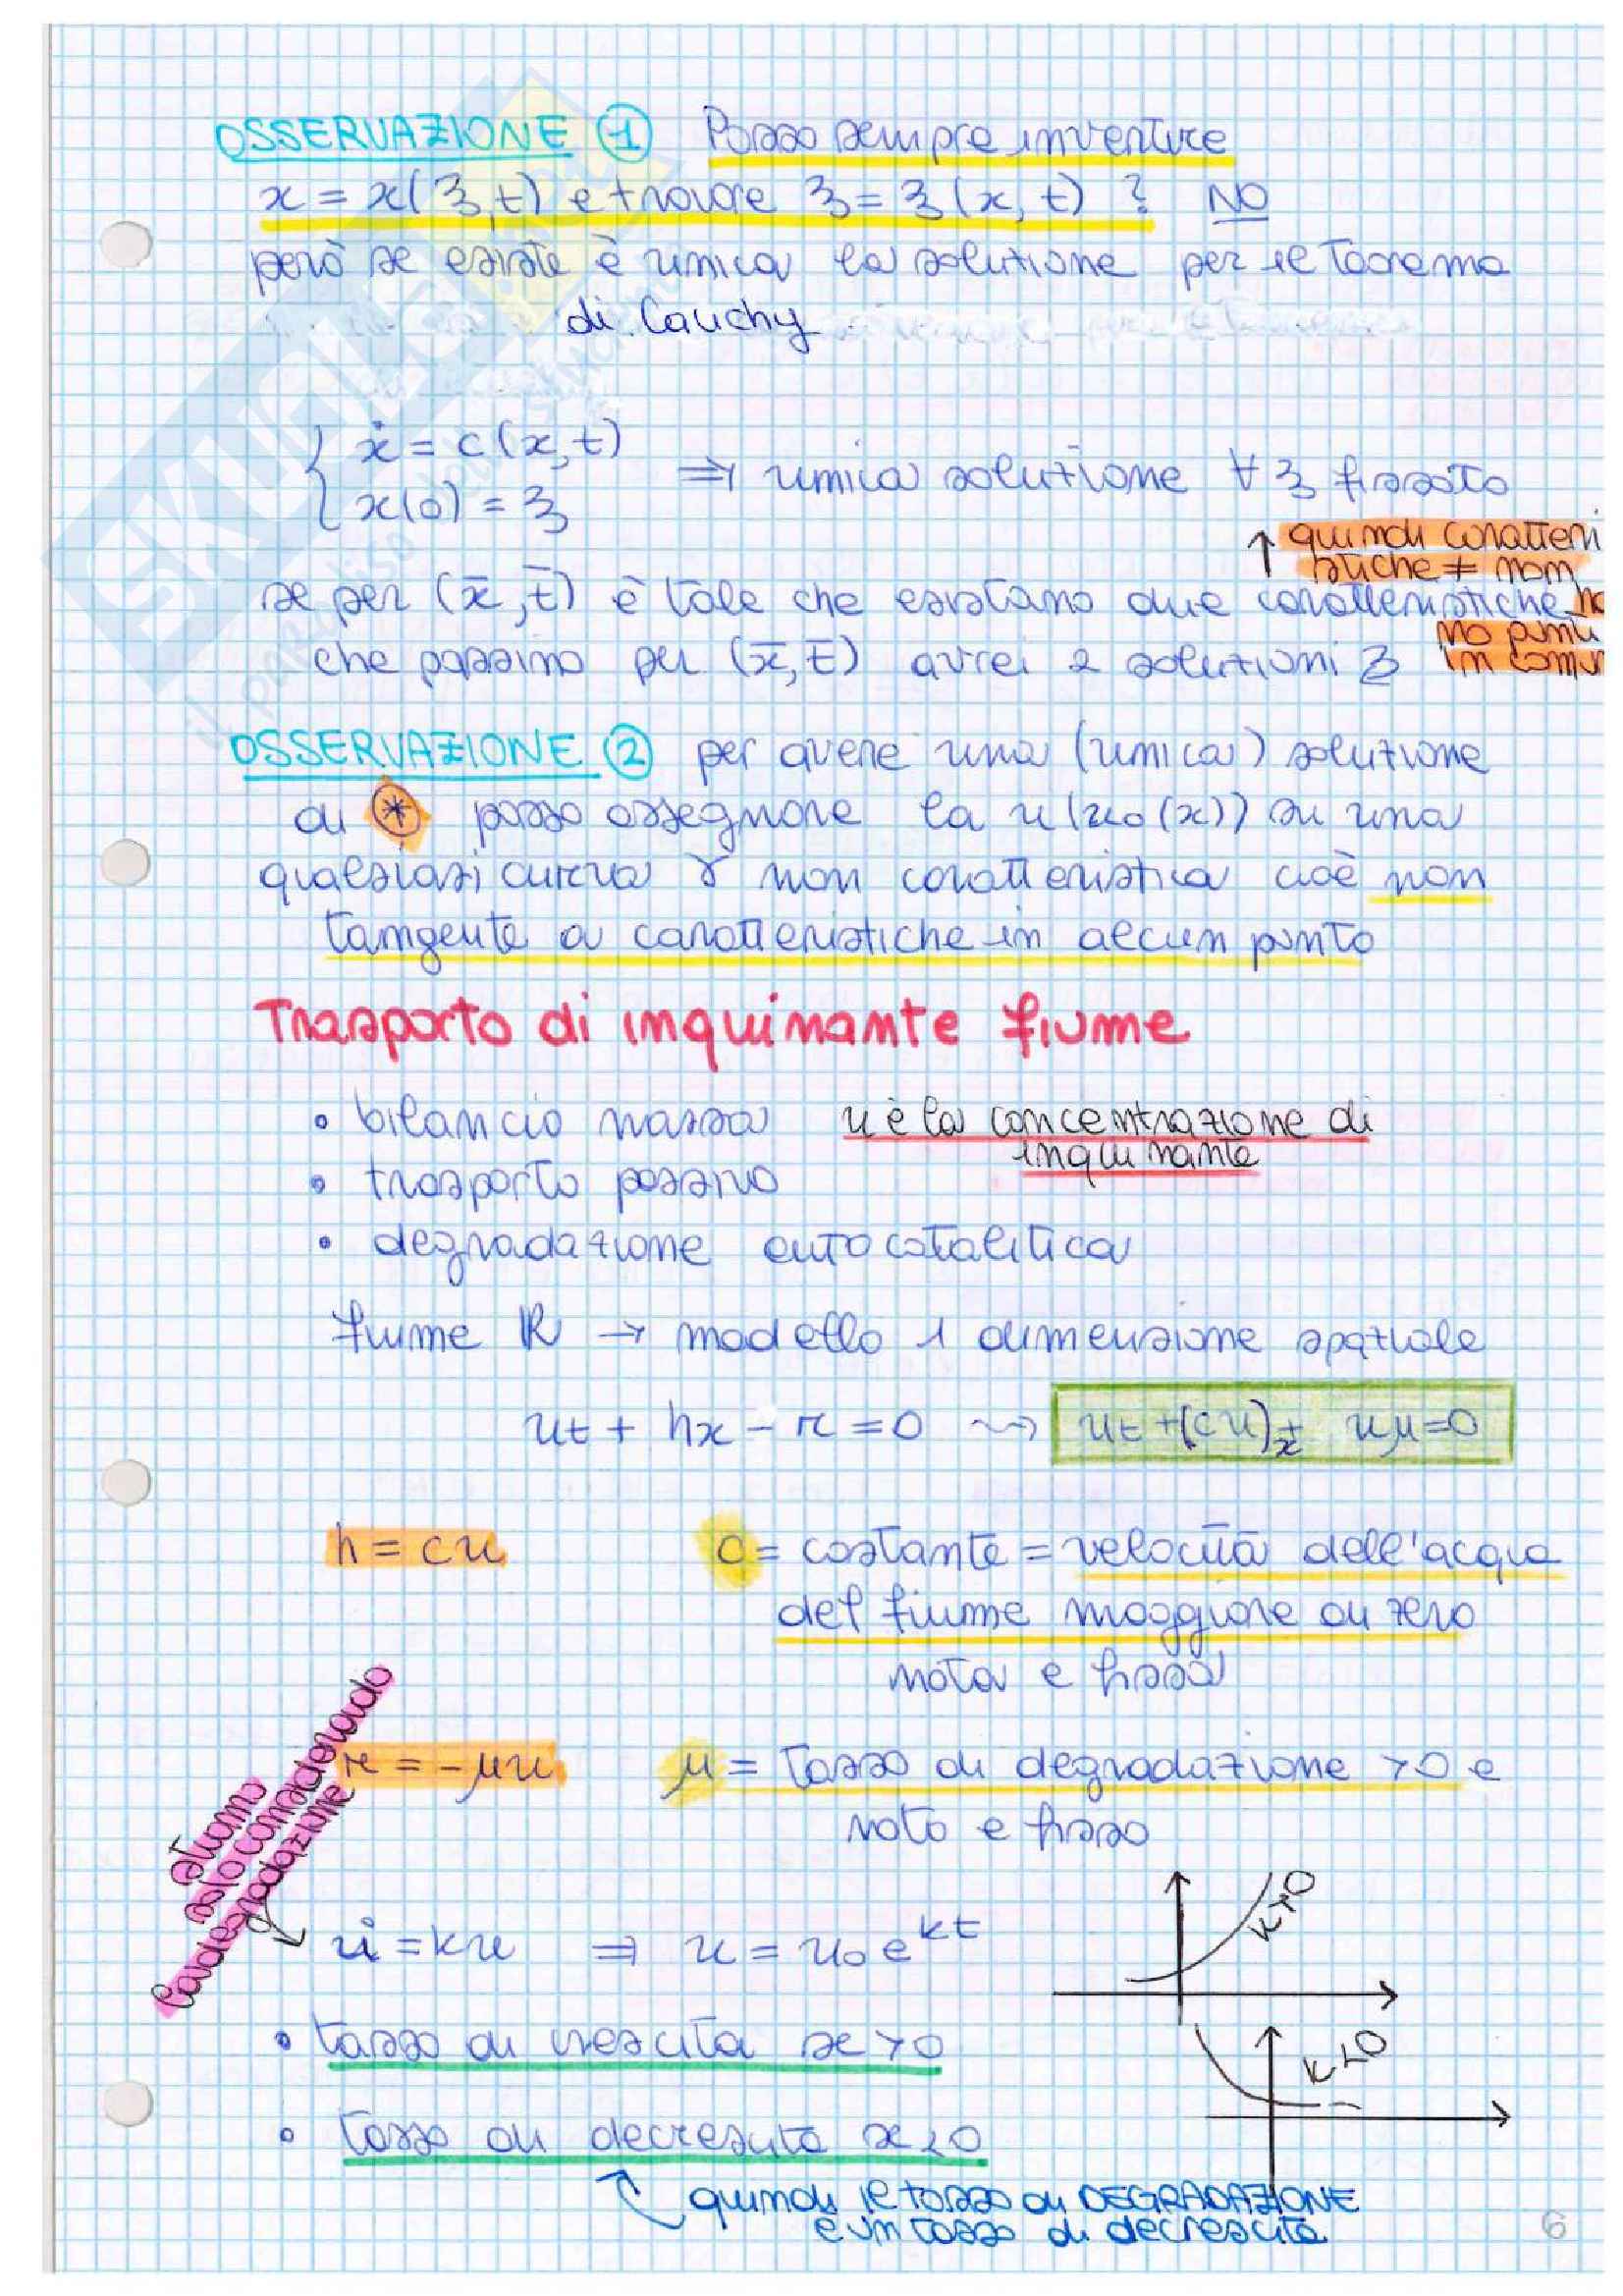 OSSERVAZIONE ① Posso sempre invertire
x = x(ξ,t) e trovare ξ = ξ(x, t) ? NO
però se esiste è unica la soluzione per il Teorema
di Cauchy
{ ẋ = c(x,t)
{ x(0) = ξ
⇒ unica soluzione ∀ ξ fissato
↑ quindi caratteri
stiche ≠ non
se per (x̄,t̄) è tale che esistano due caratteristiche
che passino per (x̄,t̄) avrei 2 soluzioni ξ
no punti
in comun
OSSERVAZIONE ② per avere una (unica) soluzione
di ⊛ posso assegnare la u (u₀(x)) su una
qualsiasi curva γ non caratteristica cioè non
tangente a caratteristiche in alcun punto
Trasporto di inquinante fiume
• bilancio massa u è la concentrazione di
inquinante
• trasporto passivo
• degradazione autocatalitica
fiume ℝ → modello 1 dimensione spaziale
ut + hx - r = 0 ⇝ ut + (cu)x + uμ = 0
h = cu c = costante = velocità dell'acqua
del fiume maggiore di zero
nota e fissa
r = -μu μ = tasso di degradazione >0 e
noto e fisso
stiamo
solo considerando
la degradazione
u̇ = ku ⇒ u = u₀ e^kt
k>0
• tasso di crescita se >0
k<0
• tasso di decrescita se <0
quindi il tasso di DEGRADAZIONE
è un tasso di decrescita
6
SKUOLA
il paradiso dello studente